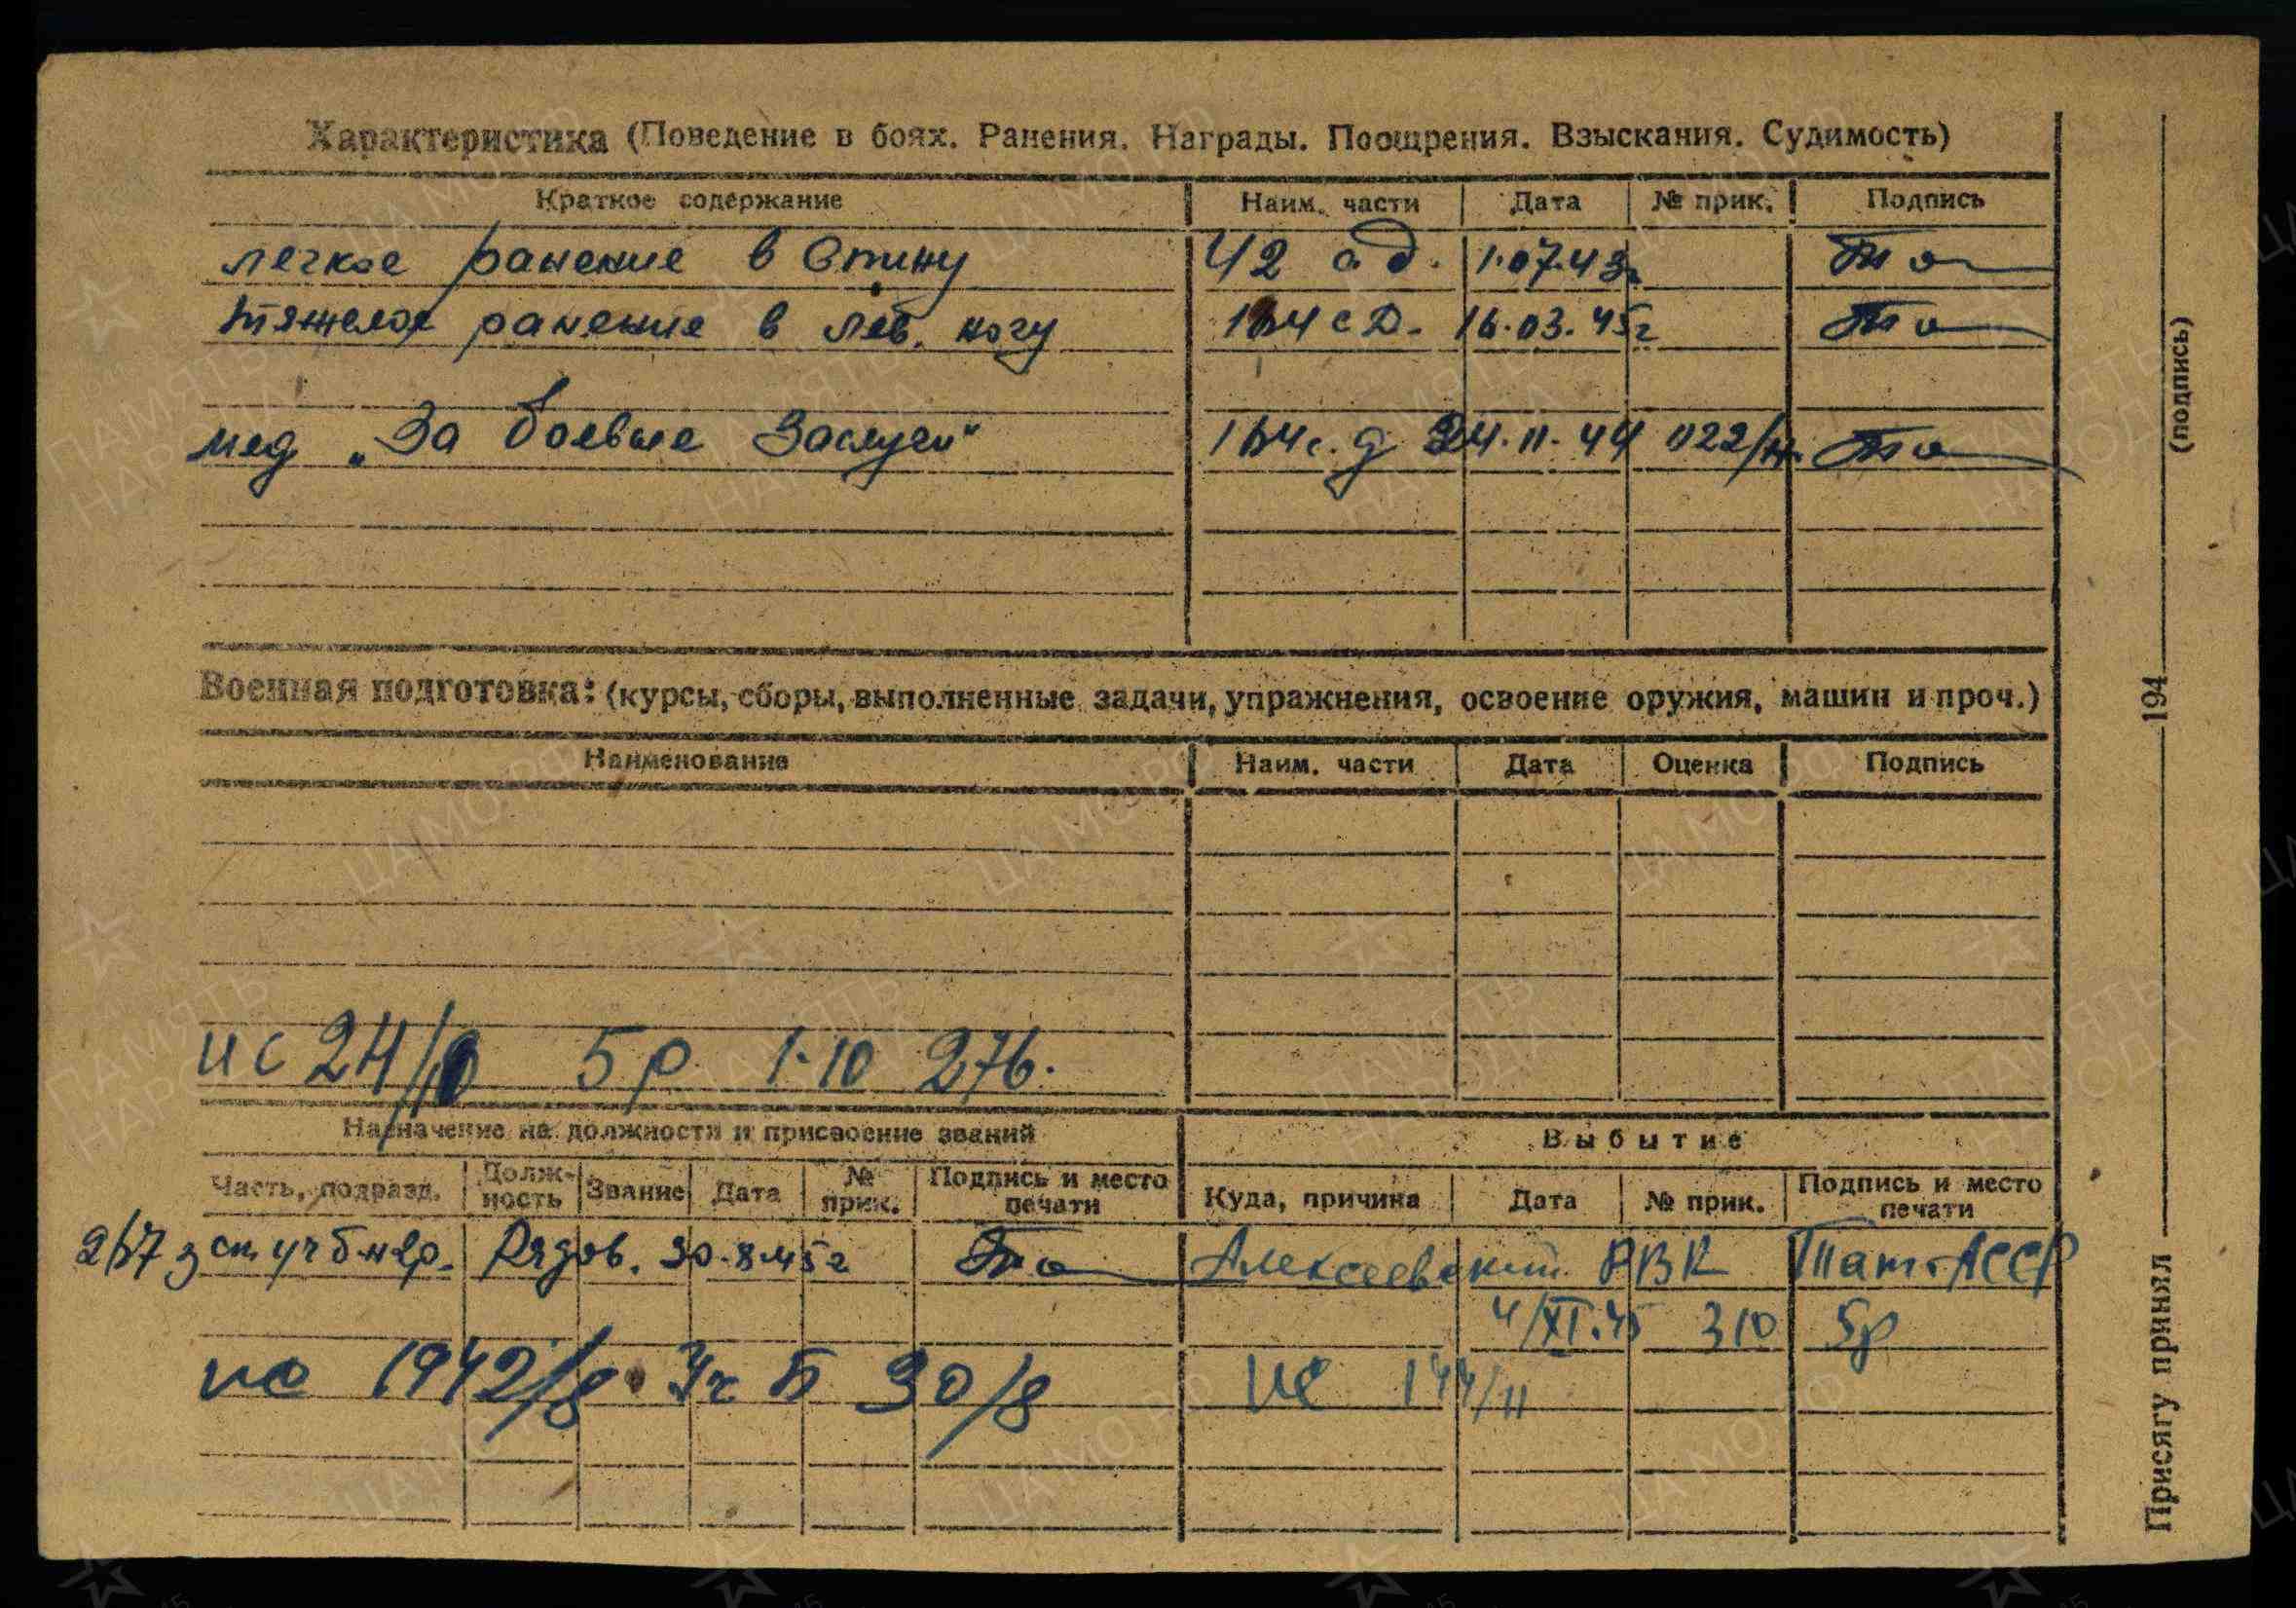 Характеристика (Поведение в боях. Ранения. Награды. Поощрения. Взыскания. Судимость)
Краткое содержание Наим. части Дата № прик. Подпись
легкое ранение в спину 42 с.д. 1.07.43г
тяжелое ранение в лев. ногу 164 с Д. 16.03.45г
мед „За боевые Заслуги" 164 с.д 24.11.44 022/н.
Военная подготовка: (курсы, сборы, выполненные задачи, упражнения, освоение оружия, машин и проч.)
Наименование Наим. части Дата Оценка Подпись
ис 24/10 5 р 1.10 276.
Назначение на должности и присвоение званий Выбытие
Часть, подразд. Должность Звание Дата № прик. Подпись и место печати Куда, причина Дата № прик. Подпись и место печати
Рядов. 30.8.45г Алексеевский РВК Тат.АССР
4/XI.45 310 5р
ис 1942/8. Уч Б 30/8 ис 144/11
Присягу принял 194 (подпись)
ПАМЯТЬ НАРОДА
ЦАМО РФ